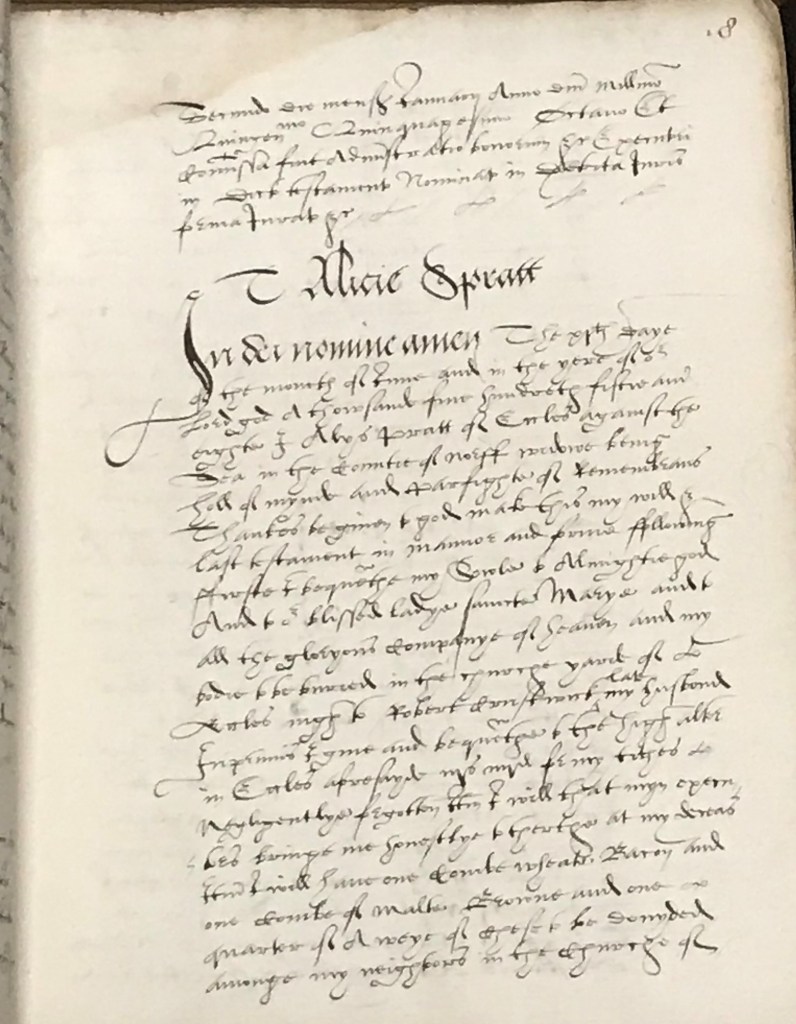 18
Secundo die mensis Januarij Anno dni Millimo
Quingenmo Quinquagesimo Octavo Et
Comissa fuit Administratio bonorum &c Executri
in dict testament Nominat in debita Juris
forma Jurat &c
T Alicie Spratt
In dei nomine amen The xth daye
of the month of June and in the yere of or
lord god A thowsande fyve hundreth fiftie and
eighte I Alys Spratt of Eccles against the
Sea in the Countie of Norff widowe being
holl of mynde and parfighte of Remembrans
Thankes be given to god make this my will &
last testament in manner and forme ffollowing
ffirste I bequethe my Sowle to Almightie god
And to or blissed ladye saincte Marye and to
all the gloryous Companye of heaven and my
bodie to be buried in the churche yarde of
Eccles nigh to Robert my late husbond
Inprimis I gyve and bequethe to the high alter
in Eccles aforesayde for my tithes
Negligentlye forgotten Itm I will that myn execu
tors bringe me honestlye to therthe at my deceas
Itm I will have one Combe wheate Bacon and
one Combe of Malte Browne and one
quarter of A weye of Chese to be devyded
amonge my neighbors in the Churche of